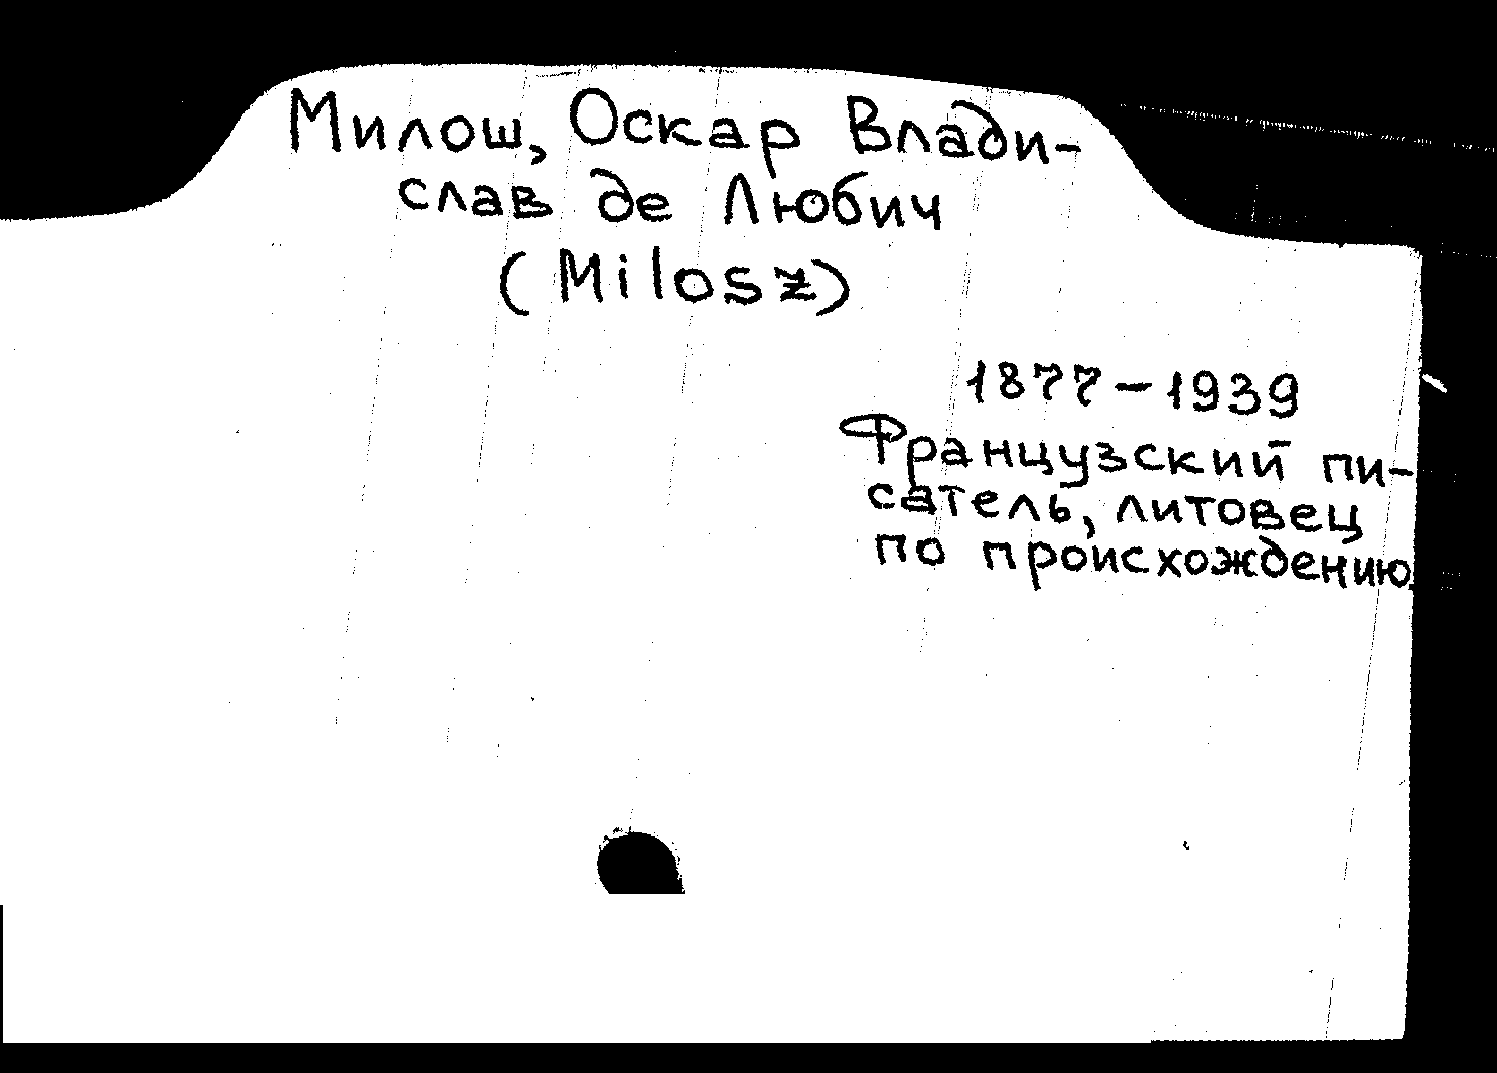 Милош, Оскар Влади-
слав де Любич
(Milosz)
1877-1939
Французский пи-
сатель, литовец
по происхождению.